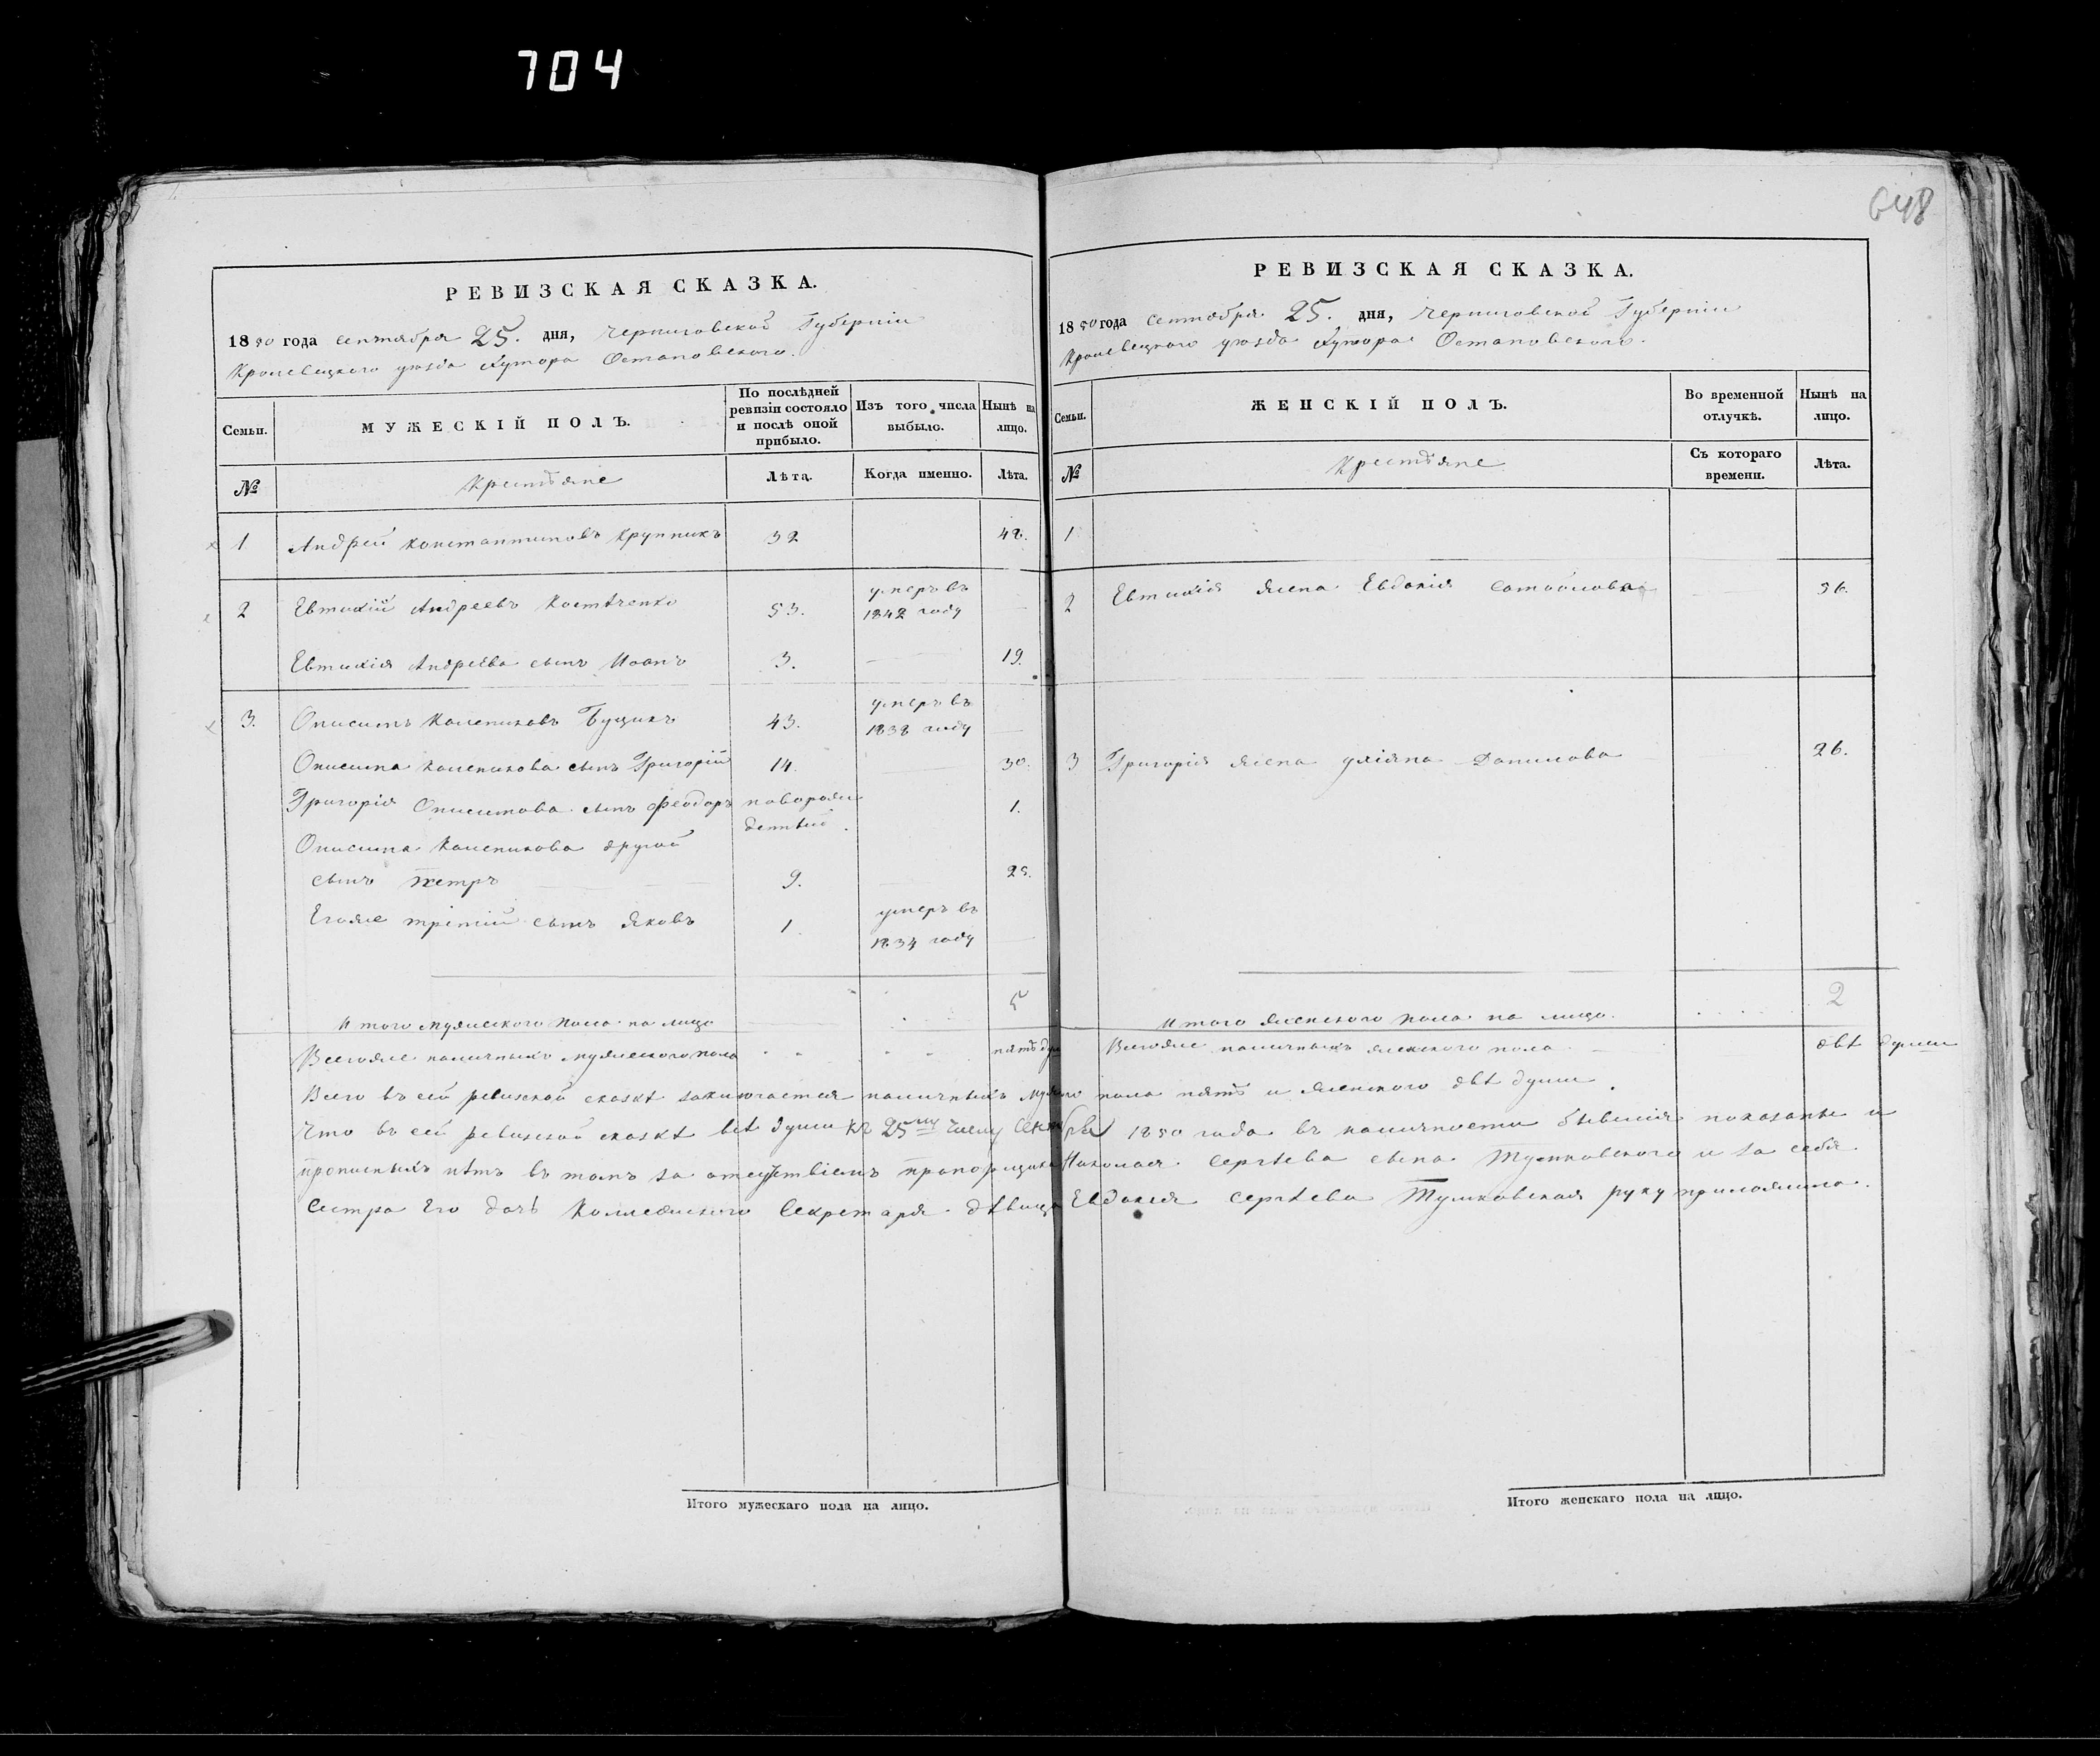 704
648
РЕВИЗСКАЯ СКАЗКА.
1850 года сентября 25. дня, Черниговской Губернiи
Кролевецкого уѣзда Хутора Остановского.
Семьи.
МУЖЕСКIЙ ПОЛЪ.
По послѣдней ревизiи состояло и послѣ оной прибыло.
Изъ того числа выбыло.
Нынѣ на лицо.
№
Крестьяне
Лѣта.
Когда именно.
Лѣта.
1 Андрей Константиновъ Крупникъ 32 48.
2 Евтихiй Андреевъ Костѣченко 53. умеръ въ 1842 году
Евтихiя Андреева сынъ Иванъ 3. 19.
3. Онисимъ Калениковъ Бущикъ 43. умеръ въ 1838 году
Онисима Каленикова сынъ Григорiй 14. 30.
Григорiя Онисимова сынъ Феодоръ новорожденный. 1.
Онисима Каленикова другой
сынъ Петръ 9. 25.
Егоже третiй сынъ Яковъ 1. умеръ въ 1834 году
5
Итого мужеского пола на лицо
Всегоже наличныхъ мужеского пола пять душ
РЕВИЗСКАЯ СКАЗКА.
1850 года сентября 25. дня, Черниговской Губернiи
Кролевецкого уѣзда Хутора Остановского.
Семьи.
ЖЕНСКIЙ ПОЛЪ.
Во временной отлучкѣ.
Нынѣ на лицо.
№
Крестьяне
Съ котораго времени.
Лѣта.
1
2 Евтихiя жена Евдокiя 56.
3 Григорiя жена Улiяна Данилова 26.
2
Итого женского пола на лицо.
Всегоже наличныхъ женского пола двѣ души
Всего въ сей ревизской сказкѣ заключается наличныхъ пола пять и женского двѣ души.
Что въ сей ревизской сказкѣ всѣ души къ 25му числу 1850 года въ наличности бывшiя показаны и
прописныхъ нѣтъ въ томъ за отсуствiемъ прапорщика Николая Сергѣева сына Тумковского и за себя
Сестра его дочь Коллежского Секретаря дѣвица Евдокiя Сергѣева Тумковская руку приложила.
Итого мужескаго пола на лицо.
Итого женскаго пола на лицо.